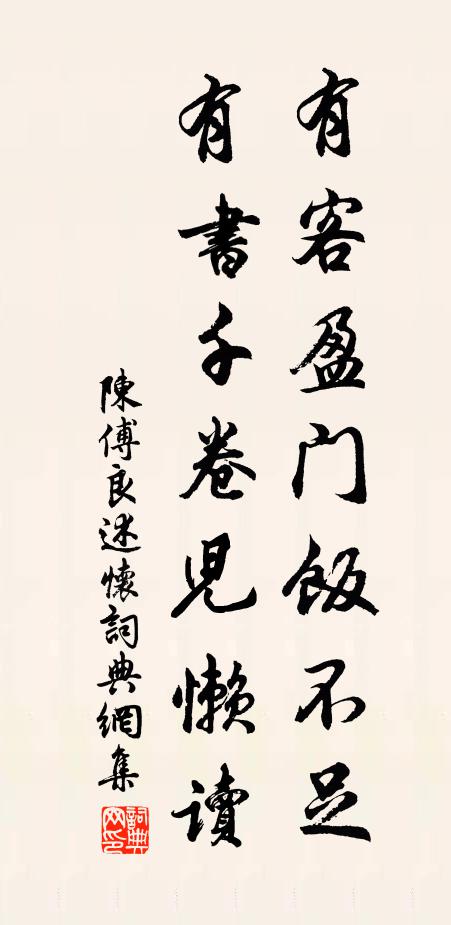 有客盈门飯不足
有書千卷児懶讀
陳傅良述懷詞典網集
詞典網印